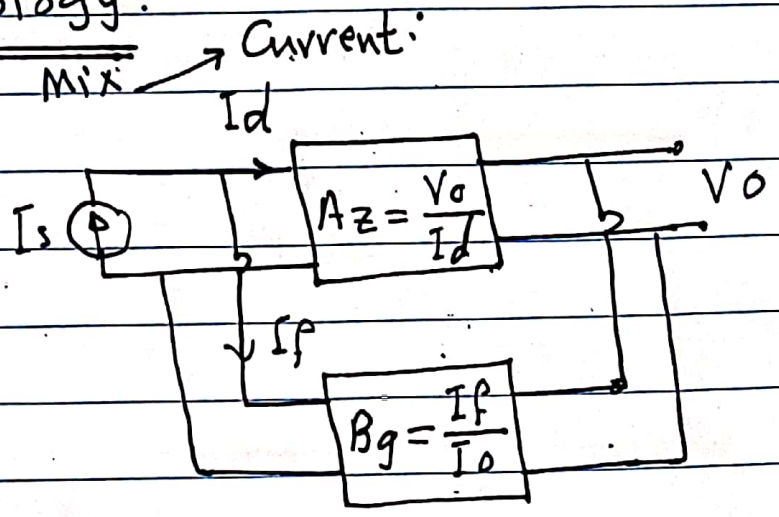 ology:
Mix → Current:
Id
Is
Az = Vo/Id
Vo
If
Bg = If/Io